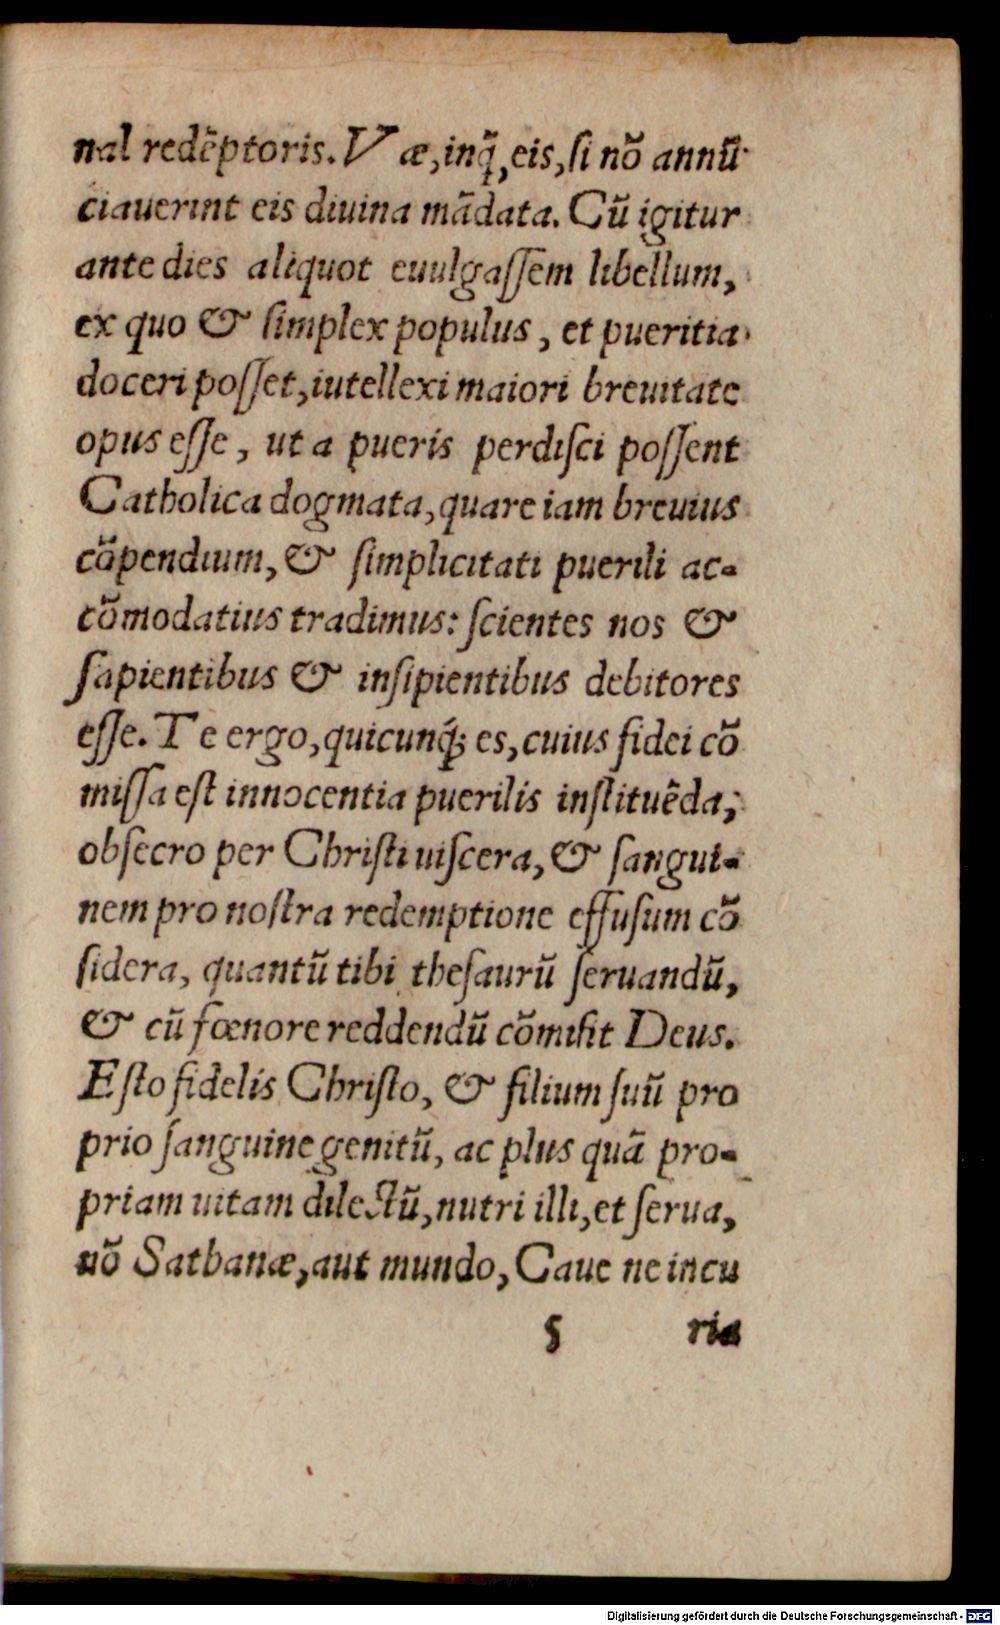 nal redẽptoris. Væ, inq̃, eis, si nõ annũ
ciauerint eis diuina mãdata. Cũ igitur
ante dies aliquot euulgaſſem libellum,
ex quo & ſimplex populus, et pueritia
doceri poſſet, iutellexi maiori breuitate
opus eſſe, ut a pueris perdiſci poſſent
Catholica dogmata, quare iam breuius
cõpendium, & ſimplicitati puerili ac-
cõmodatius tradimus: ſcientes nos &
ſapientibus & inſipientibus debitores
eſſe. Te ergo, quicunq; es, cuius fidei cõ
miſſa eſt innocentia puerilis inſtituẽda,
obſecro per Chriſti uiſcera, & ſangui-
nem pro noſtra redemptione effuſum cõ
ſidera, quantũ tibi theſaurũ ſeruandũ,
& cũ fœnore reddendũ cõmiſit Deus.
Eſto fidelis Chriſto, & filium ſuũ pro
prio ſanguine genitũ, ac plus quã pro-
priam uitam dilectũ, nutri illi, et ſerua,
nõ Sathanæ, aut mundo, Caue ne incu
5 ria
Digitalisierung gefördert durch die Deutsche Forschungsgemeinschaft - DFG